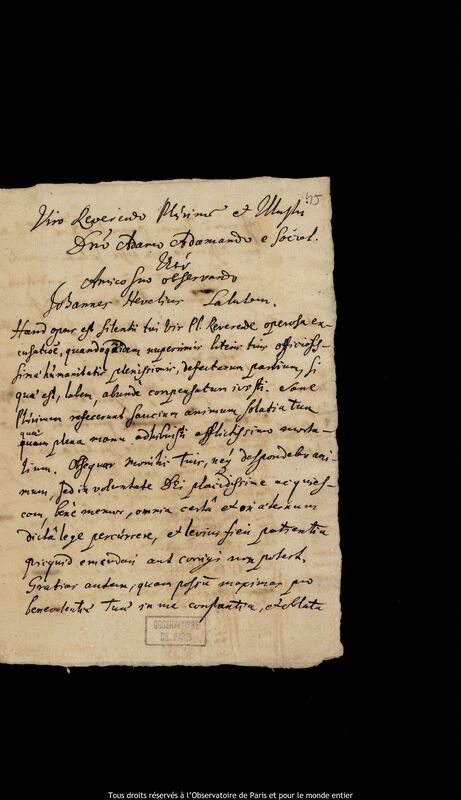 Viro Reverendo Plurimum et Illustri
Dno Adamo Adamando e Societ.
Amico suo observando
Johannes Hevelius Salutem.
Haud opus est silentii tui Vir Pl. Reverende operosa ex-
cusatioe, quandoquidem nuperimis literis tuis officiosis-
sime humanitatis plenissimis, defectum parvum, si
qua est, labem, abunde compensatum ivisti. Sane
Plurimum refecerunt saucium animum solatia tua
quae
quam plena manu adhibuisti afflictissimo morta-
lium. Obsequar monitis tuis, neq despondebo ani-
mum, sed in voluntate Dei placidissime acquies-
cam, bene memor, omnia certa et in aeternum
dicta lege percurrere, et levius fieri patientia
quicquid emendari aut corrigi non potest.
Gratias autem, quam possum maximas, pro
benevolentia Tua in me constantia, et oblata
45
OBSERVATOIRE
DE PARIS
Tous droits réservés à l'Observatoire de Paris et pour le monde entier